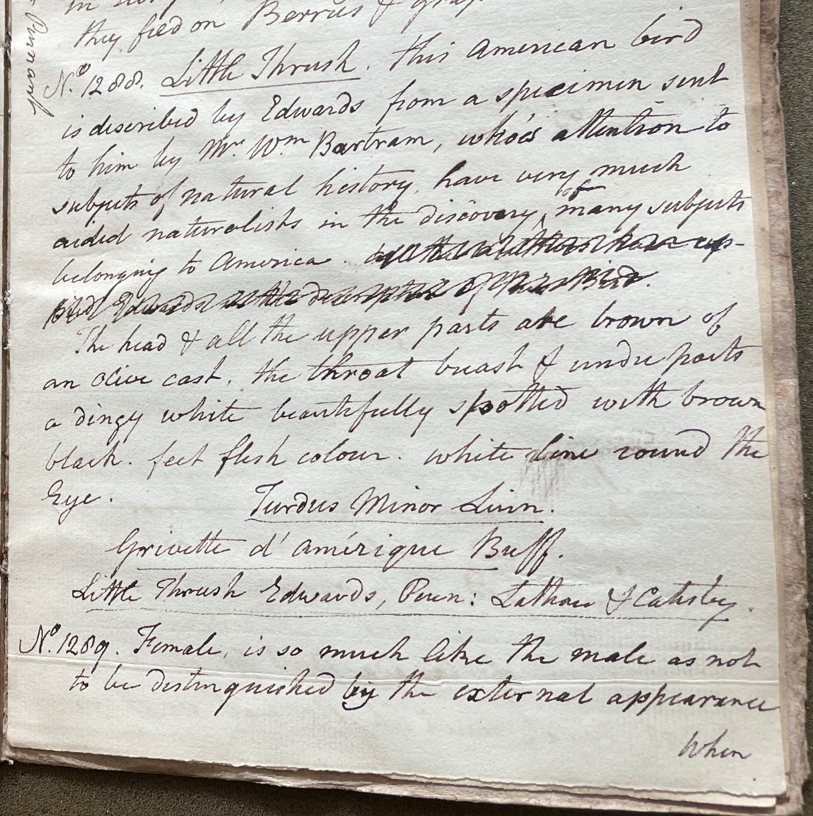 they feed on Berries &
Nº. 1288. Little Thrush. this American bird
is discribed by Edwards from a specimen sent
to him by Mr. Wm Bartram, who's attention to
subjects of natural history, have very much
aided naturalists in the discovery, of many subjects
belonging to America.
The head & all the upper parts are brown of
an olive cast. the throat breast & under parts
a dingy white beautifully spotted with brown
black. feet flesh colour. white line round the
Eye.
Turdus Minor Linn.
Grivette d'amérique Buff.
Little Thrush Edwards, Penn: Latham & Catesby.
Nº. 1289. Female, is so much like the male as not
to be distinguished by the external appearance
When